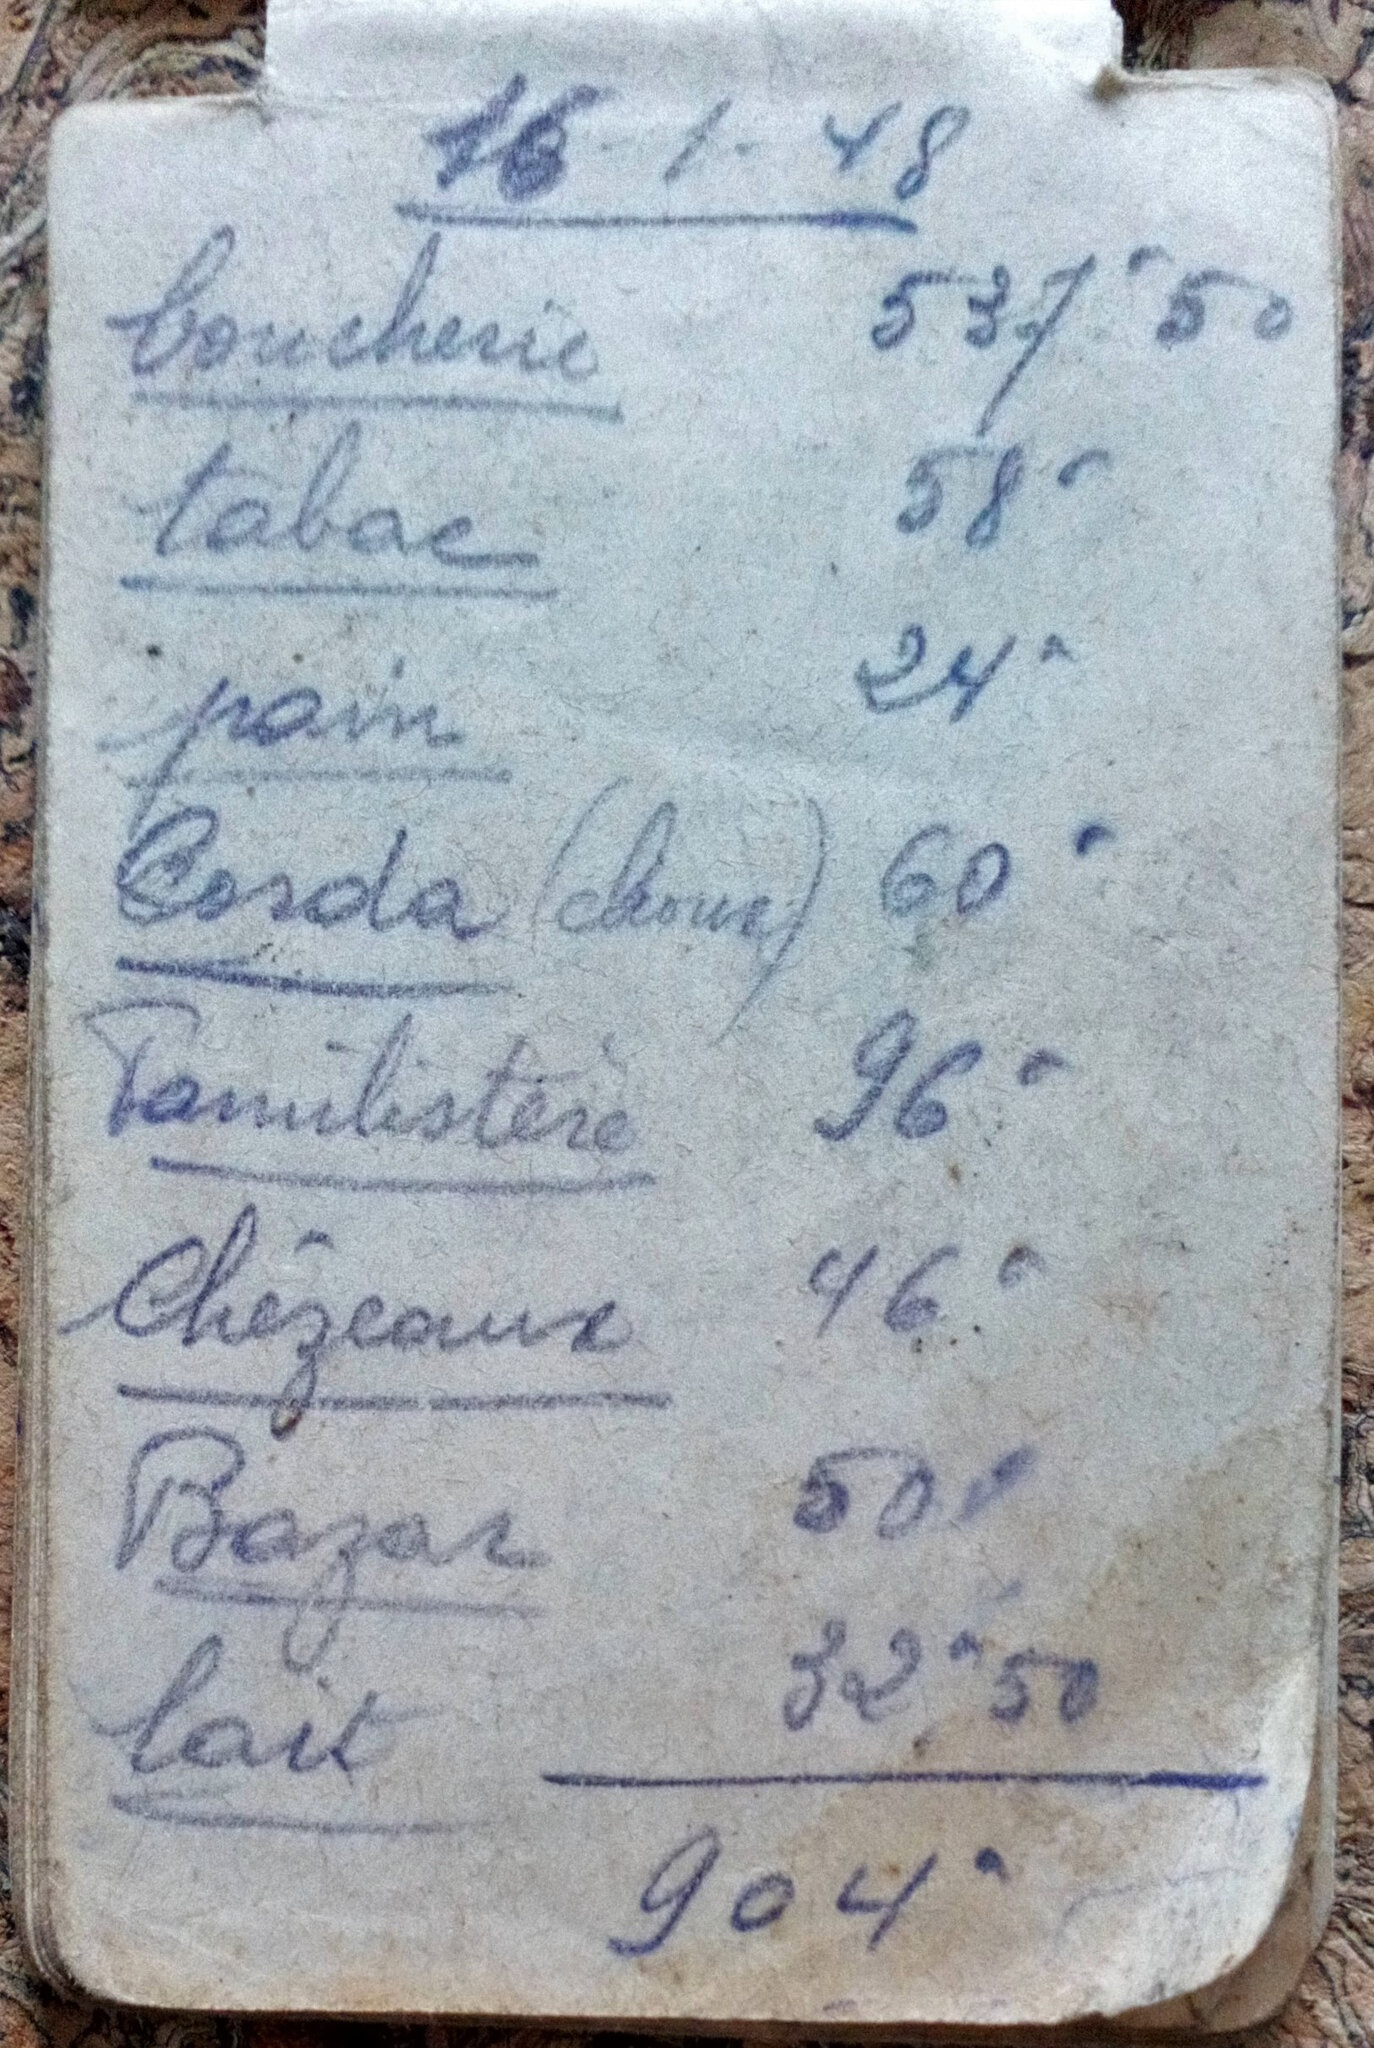 16-1-48
boucherie 537"50
tabac 58"
pain 24"
Corda (choux) 60"
Familistère 96"
Chézeaux 46"
Bazar 50"
lait 32"50
904"